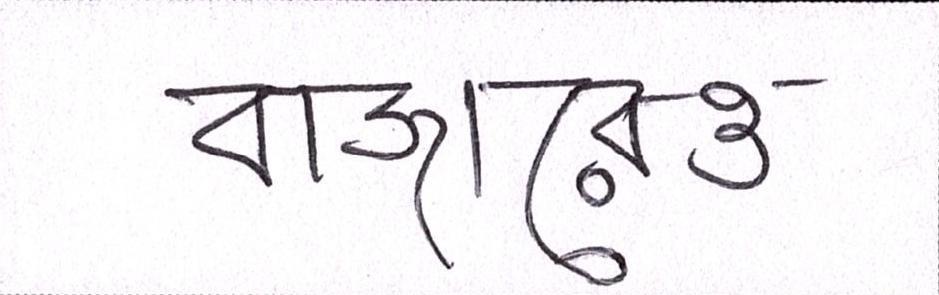 বাজারেও